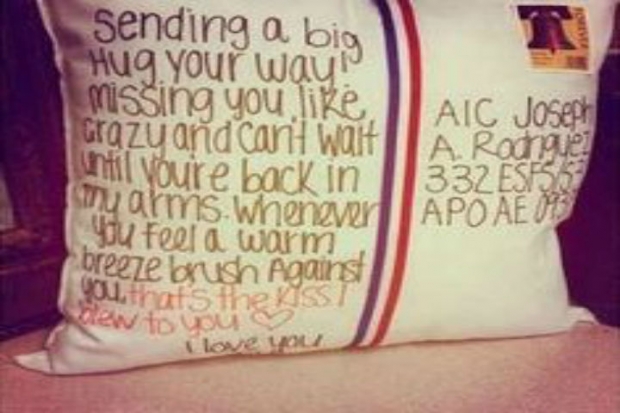 Sending a big
Hug your way!
missing you like
crazy and can't wait
until you're back in
my arms. Whenever
you feel a warm
breeze brush Against
you, that's the kiss I
blew to you ♡
I love you
FOREVER
A1C Joseph
A. Rodriguez
332 ESFS
APO AE 093